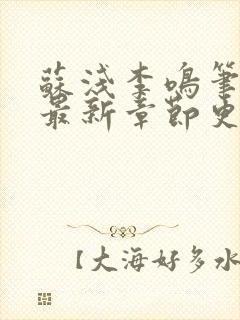 蘇淺李鳴筆
最新章節史
【大海好多水